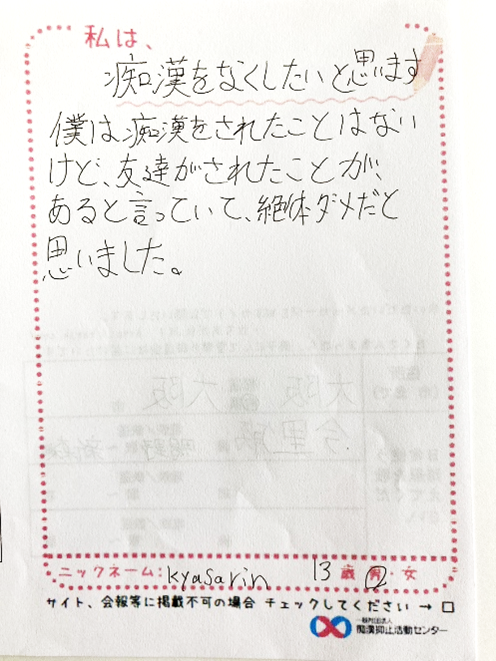 私は、
痴漢をなくしたいと思います
僕は痴漢をされたことはない
けど、友達がされたことが、
あると言っていて、絶体ダメだと
思いました。
ニックネーム: kyasarin 13歳 男・女
サイト、会報等に掲載不可の場合 チェックしてください → □
一般社団法人
痴漢抑止活動センター